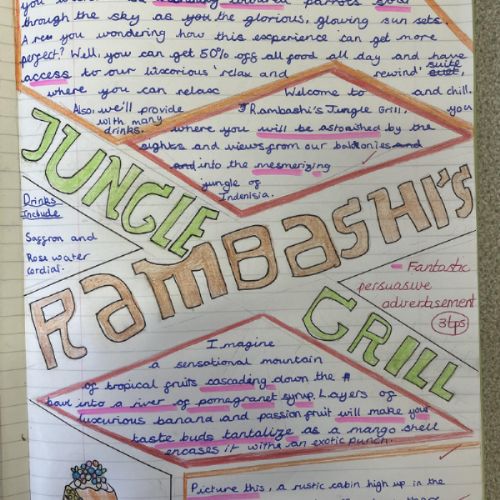 through the sky as you the glorious, glowing sun sets.
Are you wondering how this experience can get more
perfect? Well, you can get 50% off all food all day and have
access to our luxurious 'relax and rewind' suite
where you can relax and chill.
Also, we'll provide you
with many
drinks.
Welcome to
Rambashi's Jungle Grill,
where you will be astonished by the
sights and views from our balconies and
and into the mesmerizing
jungle of
Indenisia.
JUNGLE
RAMBASHI'S
GRILL
Drinks
Include
Saffron and
Rose water
cordial.
Fantastic
persuasive
advertisement
3tps
Imagine
a sensational mountain
of tropical fruits cascading down the
bowl into a river of pomagranet syrup. Layers of
luxurious banana and passion fruit will make your
taste buds tantalize as a mango shell
encases it with an exotic punch.
Picture this, a rustic cabin high up in the